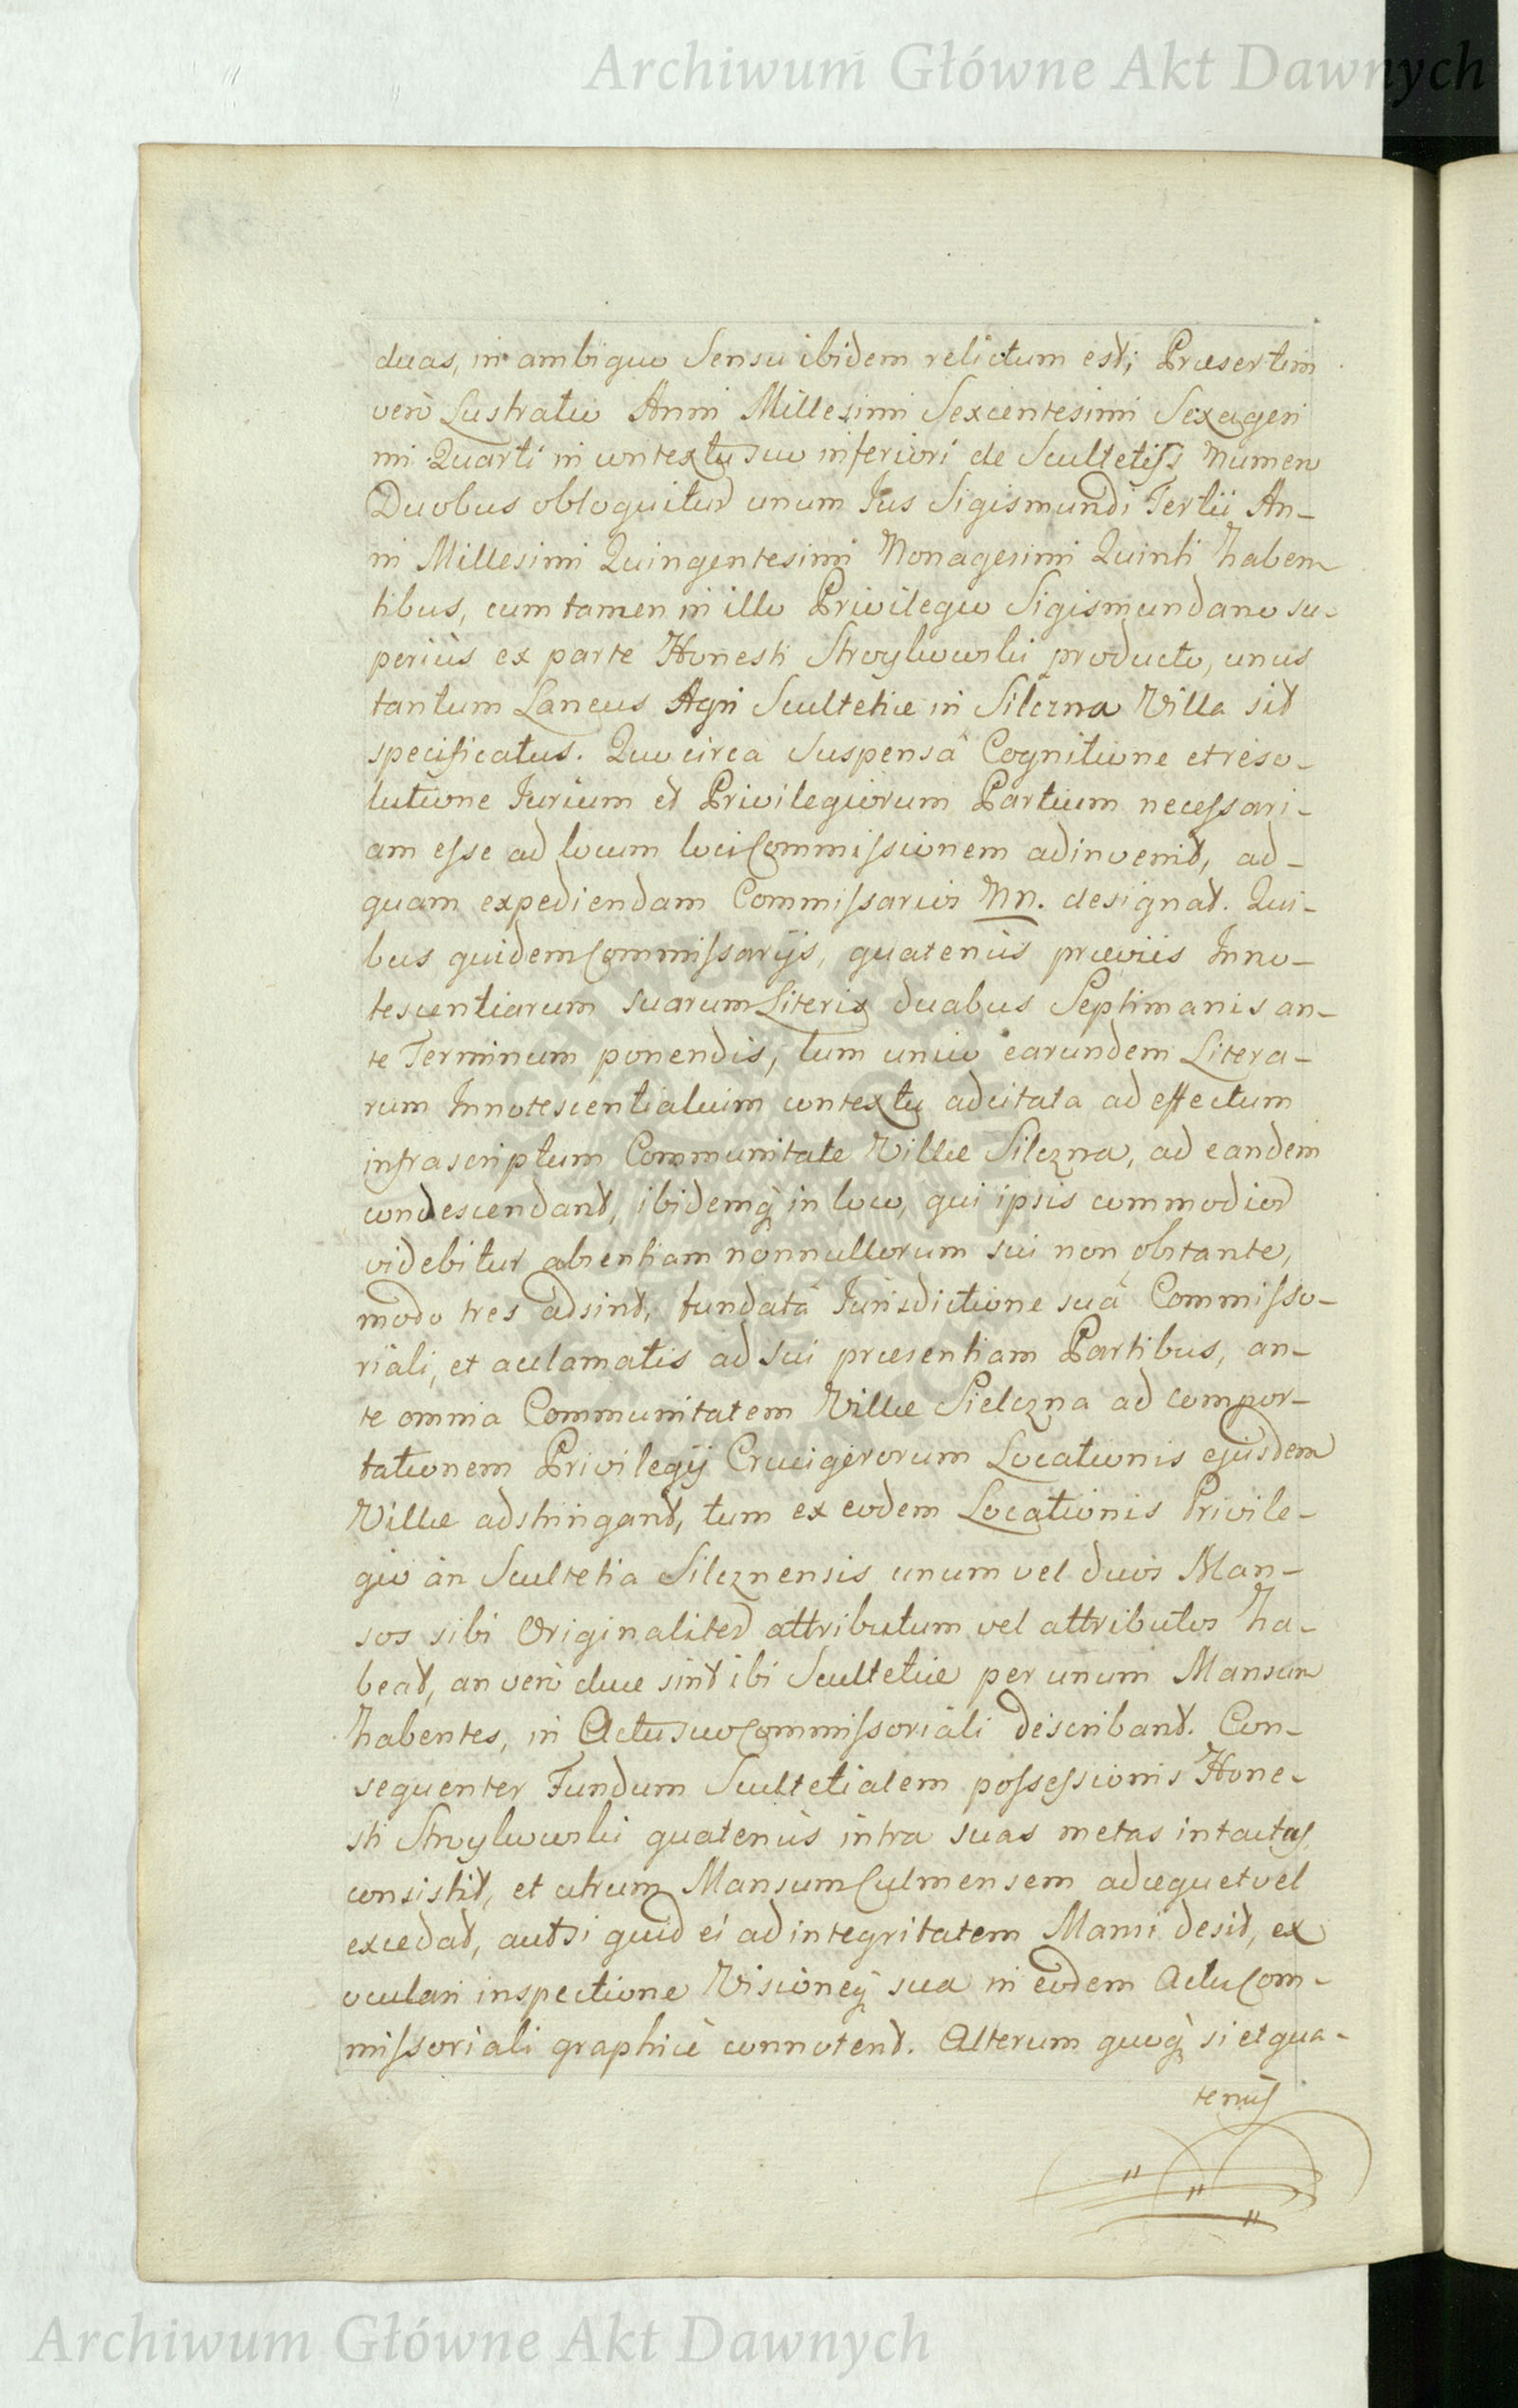 Archiwum Główne Akt Dawnych
duas, in ambiguo Sensu ibidem relictum est; Præsertim
verò Lustratio Anni Millesimi Sexcentesimi Sexagesi
mi Quarti in contextu suo inferiori de Scultetiis Numero
Duobus obloquitur unum Jus Sigismundi Tertii An-
ni Millesimi Quingentesimi Nonagesimi Quinti haben
tibus, cum tamen in illo Privilegio Sigismundano su-
periùs ex parte Honesti Stroylwowski producto, unus
tantum Laneus Agri Scultetiæ in Silczna Villa sit
specificatus. Quo circa Suspensâ Cognitione et reso-
lutione Jurium et Privilegiorum Partium necessari-
am esse ad locum loci Commissionem adinvenit, ad-
quam expediendam Commissarios NN. designat. Qui-
bus quidem Commissarijs, quatenùs præviis Inno-
tescentiarum suarum Literis duabus Septimanis an-
te Terminum ponendis, tum unico earundem Litera-
rum Innotescentialium contextu adcitata ad effectum
infrascriptum Communitate Villæ Silczna, ad eandem
condescendant, ibidemq; in loco, qui ipsis commodior
videbitur absentiam nonnullorum sui non obstante,
modo tres adsint, fundatâ Jurisdictione suâ Commisso-
riali, et acclamatis ad sui præsentiam Partibus, an-
te omnia Communitatem Villæ Sielczna ad compor-
tationem Privilegij Crucigerorum Locationis ejusdem
Villæ adstringant, tum ex eodem Locationis Privile-
gio àn Scultetia Silcznensis unum vel duos Man-
sos sibi Originaliter attributum vel attributos ha-
beat, an verò duæ sint ibi Scultetiæ per unum Mansum
habentes, in Actu suo Commissoriali describant. Con-
sequenter Fundum Scultetialem possessionis Hone-
sti Stroylwowski quatenùs intra suas metas intactas
consistit, et utrum Mansum Culmensem adæquet vel
excedat, aut si quid ei ad integritatem Mansi desit, ex
oculari inspectione Visioneq; sua in eodem Actu Com-
missoriali graphicè connotent. Alterum quoq; si et qua-
tenus
Archiwum Główne Akt Dawnych